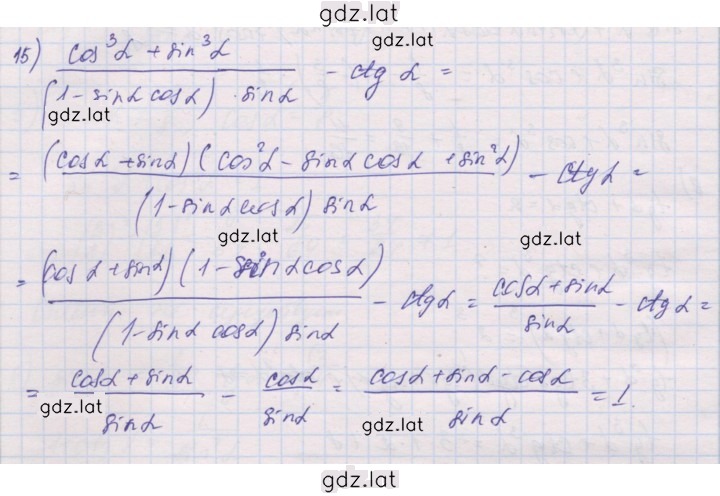 gdz.lat
15) (cos³α + sin³α) / ((1 - sinα cosα) · sinα) - ctg α =
gdz.lat
gdz.lat
= (cosα + sinα)(cos²α - sinα cosα + sin²α) / ((1 - sinα cosα) sinα) - ctgα =
gdz.lat
gdz.lat
= (cos α + sinα)(1 - sinα cosα) / ((1 - sinα cosα) sinα) - ctgα = (cosα + sinα) / sinα - ctgα =
= (cosα + sinα) / sinα - cosα / sinα = (cosα + sinα - cosα) / sinα = 1.
gdz.lat
gdz.lat
gdz.lat